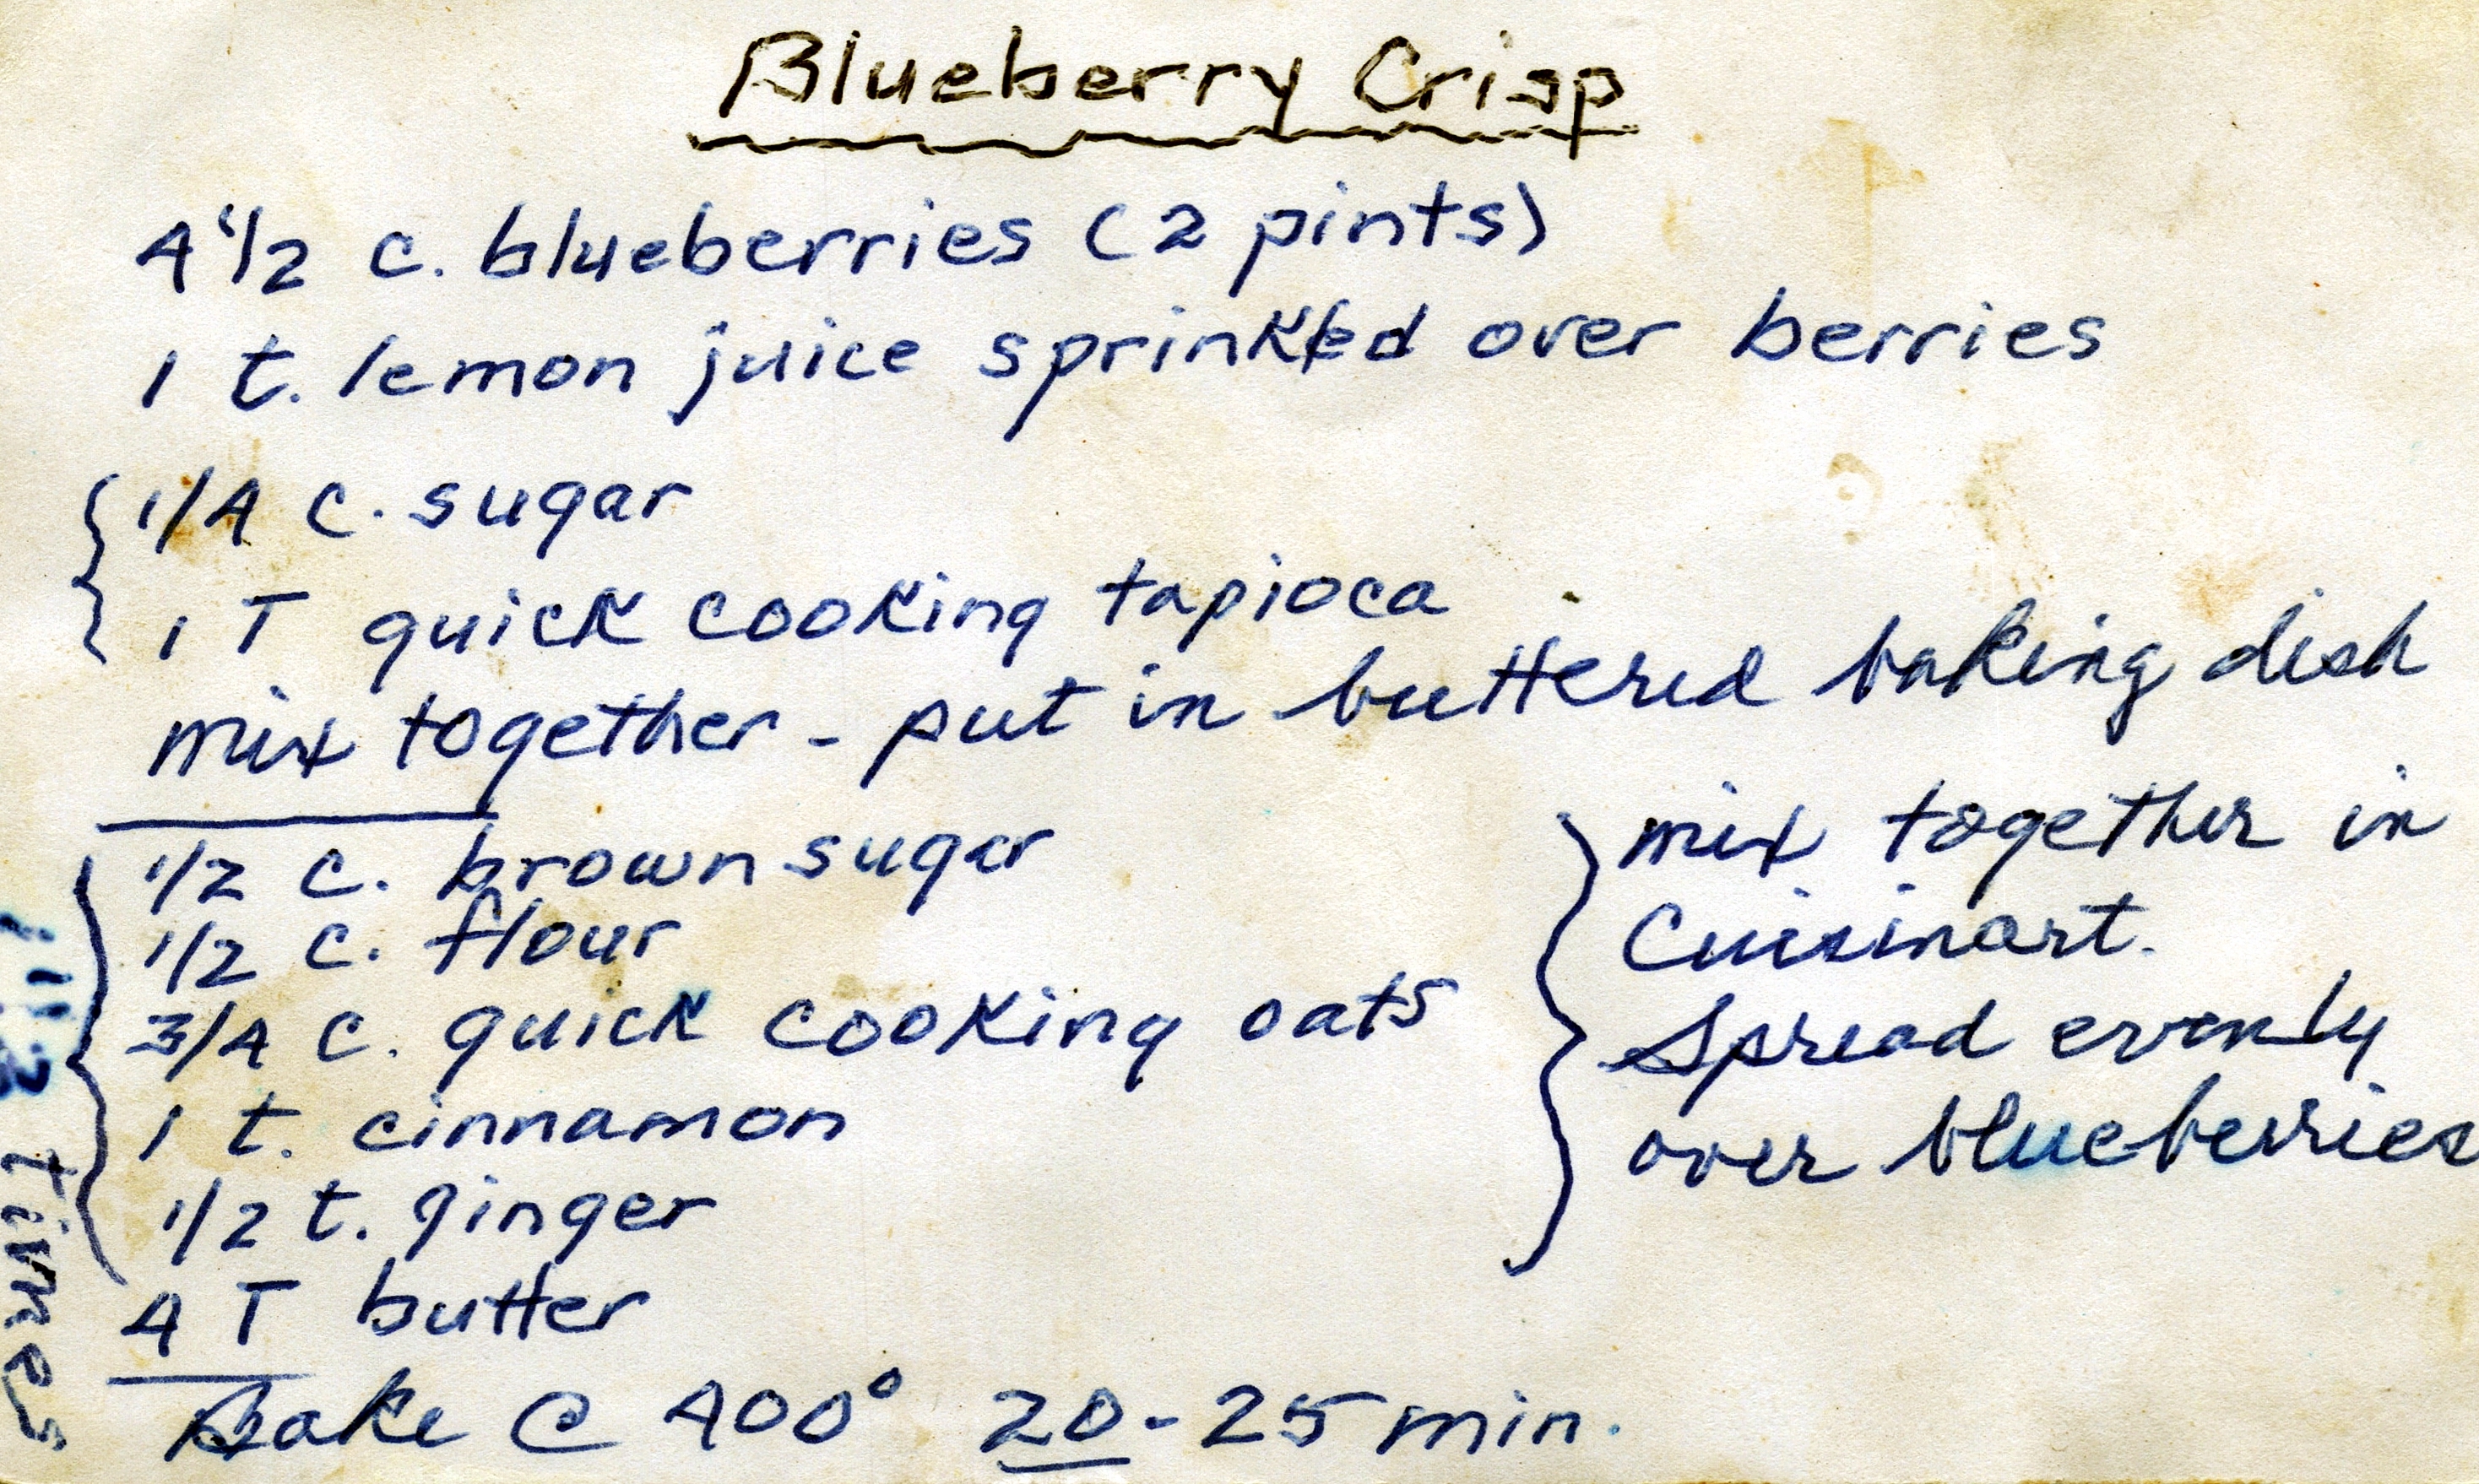 Blueberry Crisp
4 1/2 c. blueberries (2 pints)
1 t. lemon juice sprinkled over berries
1/4 c. sugar
1 T quick cooking tapioca
mix together - put in buttered baking dish
1/2 c. brown sugar
1/2 c. flour
3/4 c. quick cooking oats
1 t. cinnamon
1/2 t. ginger
4 T butter
mix together in
Cuisinart.
Spread evenly
over blueberries
Bake @ 400° 20-25 min.